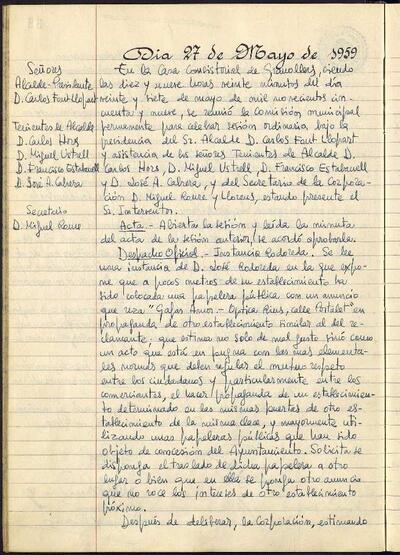 Dia 27 de Mayo de 1959
Señores
Alcalde-Presidente
D. Carlos Font Llopart
Tenientes de Alcalde
D. Carlos Hors
D. Miguel Ustrell
D. Francisco Estabanell
D. José A. Cabrera
Secretario
D. Miguel Roure
En la Casa Consistorial de Granollers, siendo
las diez y nueve horas veinte minutos del día
veinte y siete de mayo de mil novecientos cin-
cuenta y nueve, se reunió la Comisión municipal
permanente para celebrar sesión ordinaria bajo la
presidencia del Sr. Alcalde D. Carlos Font Llopart
y asistencia de los señores Tenientes de Alcalde D.
Carlos Hors, D. Miguel Ustrell, D. Francisco Estabanell
y D. José A. Cabrera, y del Secretario de la Corpora-
ción D. Miguel Roure y Llorens, estando presente el
Sr. Interventor.
Acta.- Abierta la sesión y leída la minuta
del acta de la sesión anterior, se acordó aprobarla.
Despacho Oficial.- Instancia Rodoreda. Se lee
una instancia de D. José Rodoreda en la que expo-
ne que a pocos metros de su establecimiento ha
sido colocada una papelera pública con un anuncio
que reza "Gafas Amor.- Optica Rius, calle Portalet" en
propaganda de otro establecimiento similar al del re-
clamante; que estima no solo de mal gusto sinó como
un acto que está en pugna con las mas elementa-
les normas que deben regular el mutuo respeto
entre los ciudadanos y particularmente entre los
comerciantes, el hacer propaganda de un establecimien-
to determinado en las mismas puertas de otro es-
tablecimiento de la misma clase, y mayormente uti-
lizando unas papeleras públicas que han sido
objeto de concesión del Ayuntamiento. Solicita se
disponga el traslado de dicha papelera a otro
lugar o bien que en ella se ponga otro anuncio
que no roce los intereses de otro establecimiento
próximo.
Después de deliberar, la Corporación, estimando